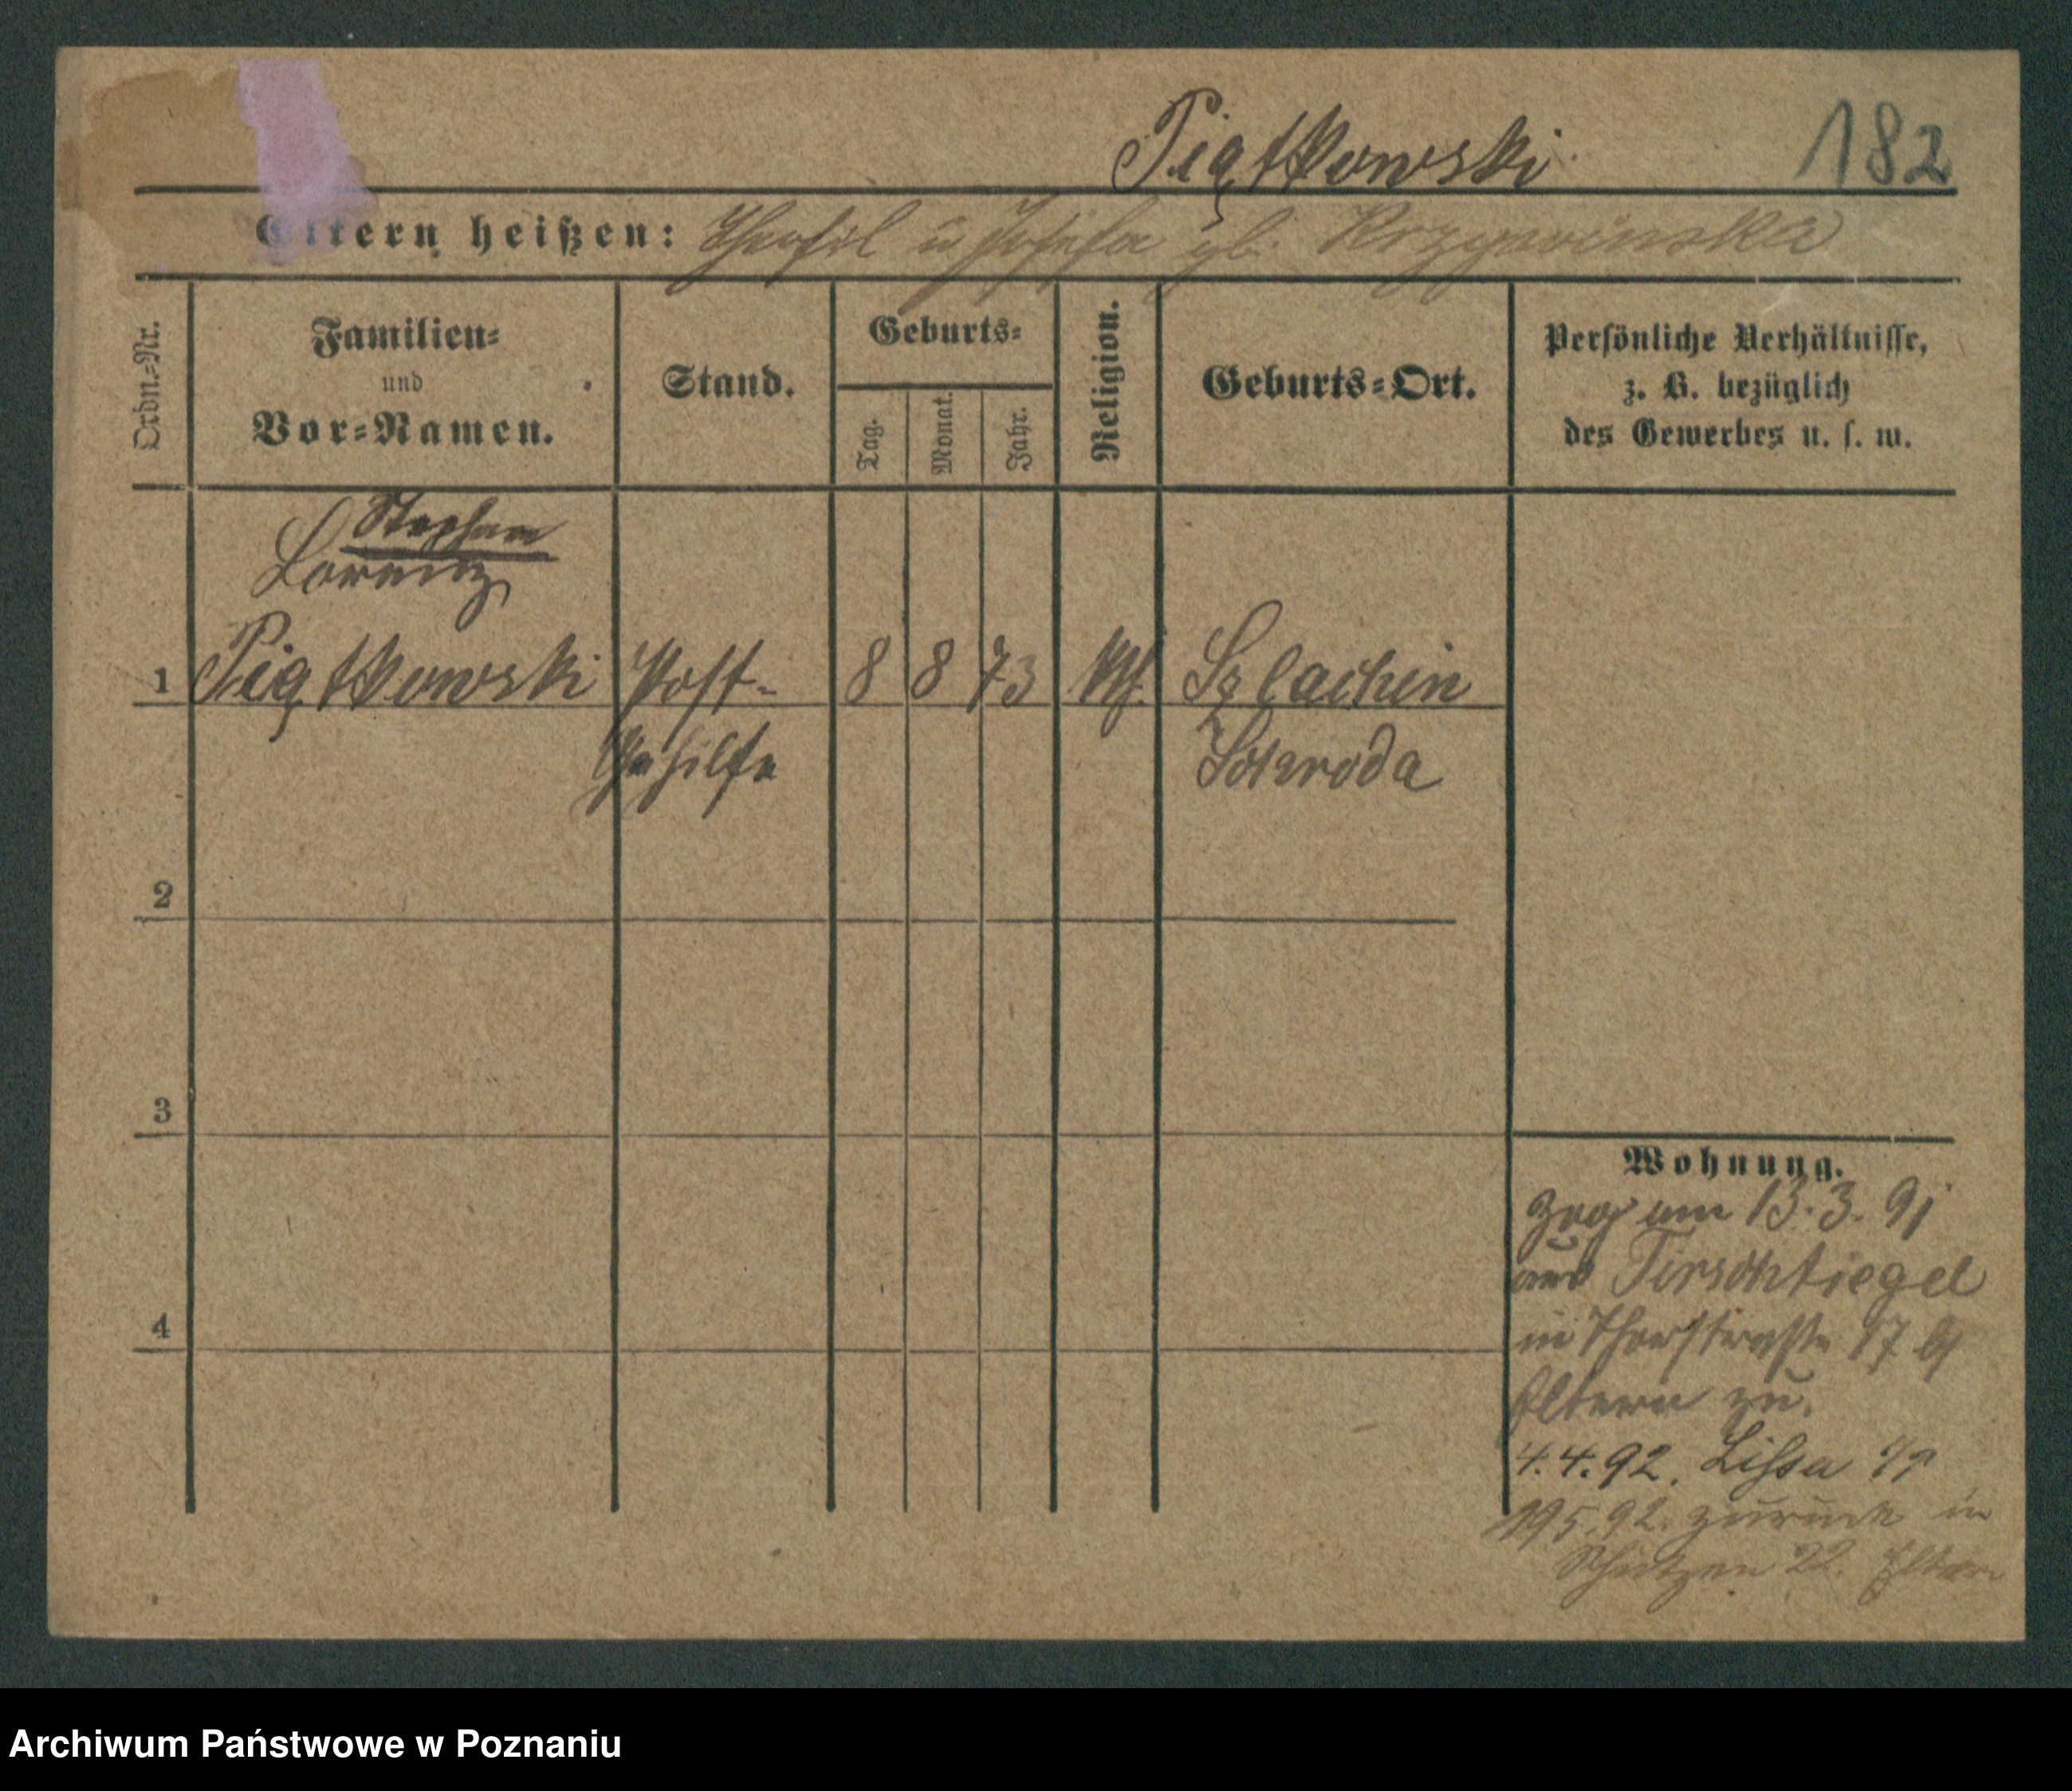 Piątkowski
182
Eltern heißen: Theofil u Josefa gb. Krzyowinska
Ordn.-Nr.
Familien-
und
Vor-Namen.
Stand.
Geburts-
Tag.
Monat.
Jahr.
Religion.
Geburts-Ort.
Persönliche Verhältnisse,
z. B. bezüglich
des Gewerbes u. s. w.
Stephan
Lorenz
1 Piątkowski Post- 8 8 73 kth. Szlachcin
Gehilfe Schroda
2
3
4
Wohnung.
Zog am 13. 3. 91
aus Tirschtiegel
in Thorstraße 17 b/
Eltern zu.
4.4.92. Lissa
19 5. 92. zurück in
Schützen 22. Eltern
Archiwum Państwowe w Poznaniu